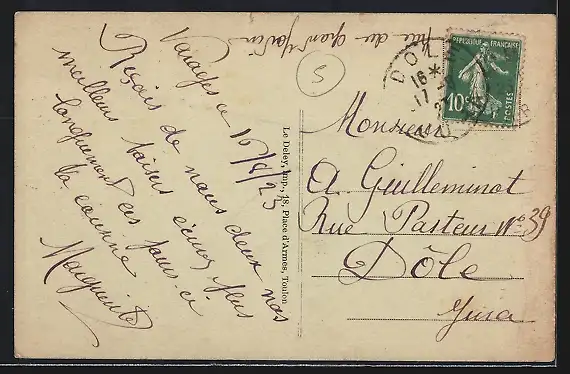 Varages ce 16/8/23
Reçois de nous deux nos
meilleurs baisers
Longuement ces jours-ci
ta cousine
Marguerite
rue du grand Jardin
5
Le Deley, Imp., 18, Place d'Armes, Toulon
DOLE
16*
17
RÉPUBLIQUE FRANÇAISE
10c
POSTES
Monsieur
A Guilleminot
Rue Pasteur N° 39
Dôle
Jura